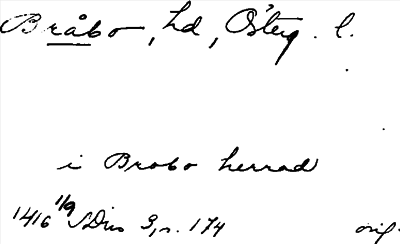 Bråbo, hd, Österg. l.
i Brobo herrad
1416 1/9 SDns 3, s. 174 orig.